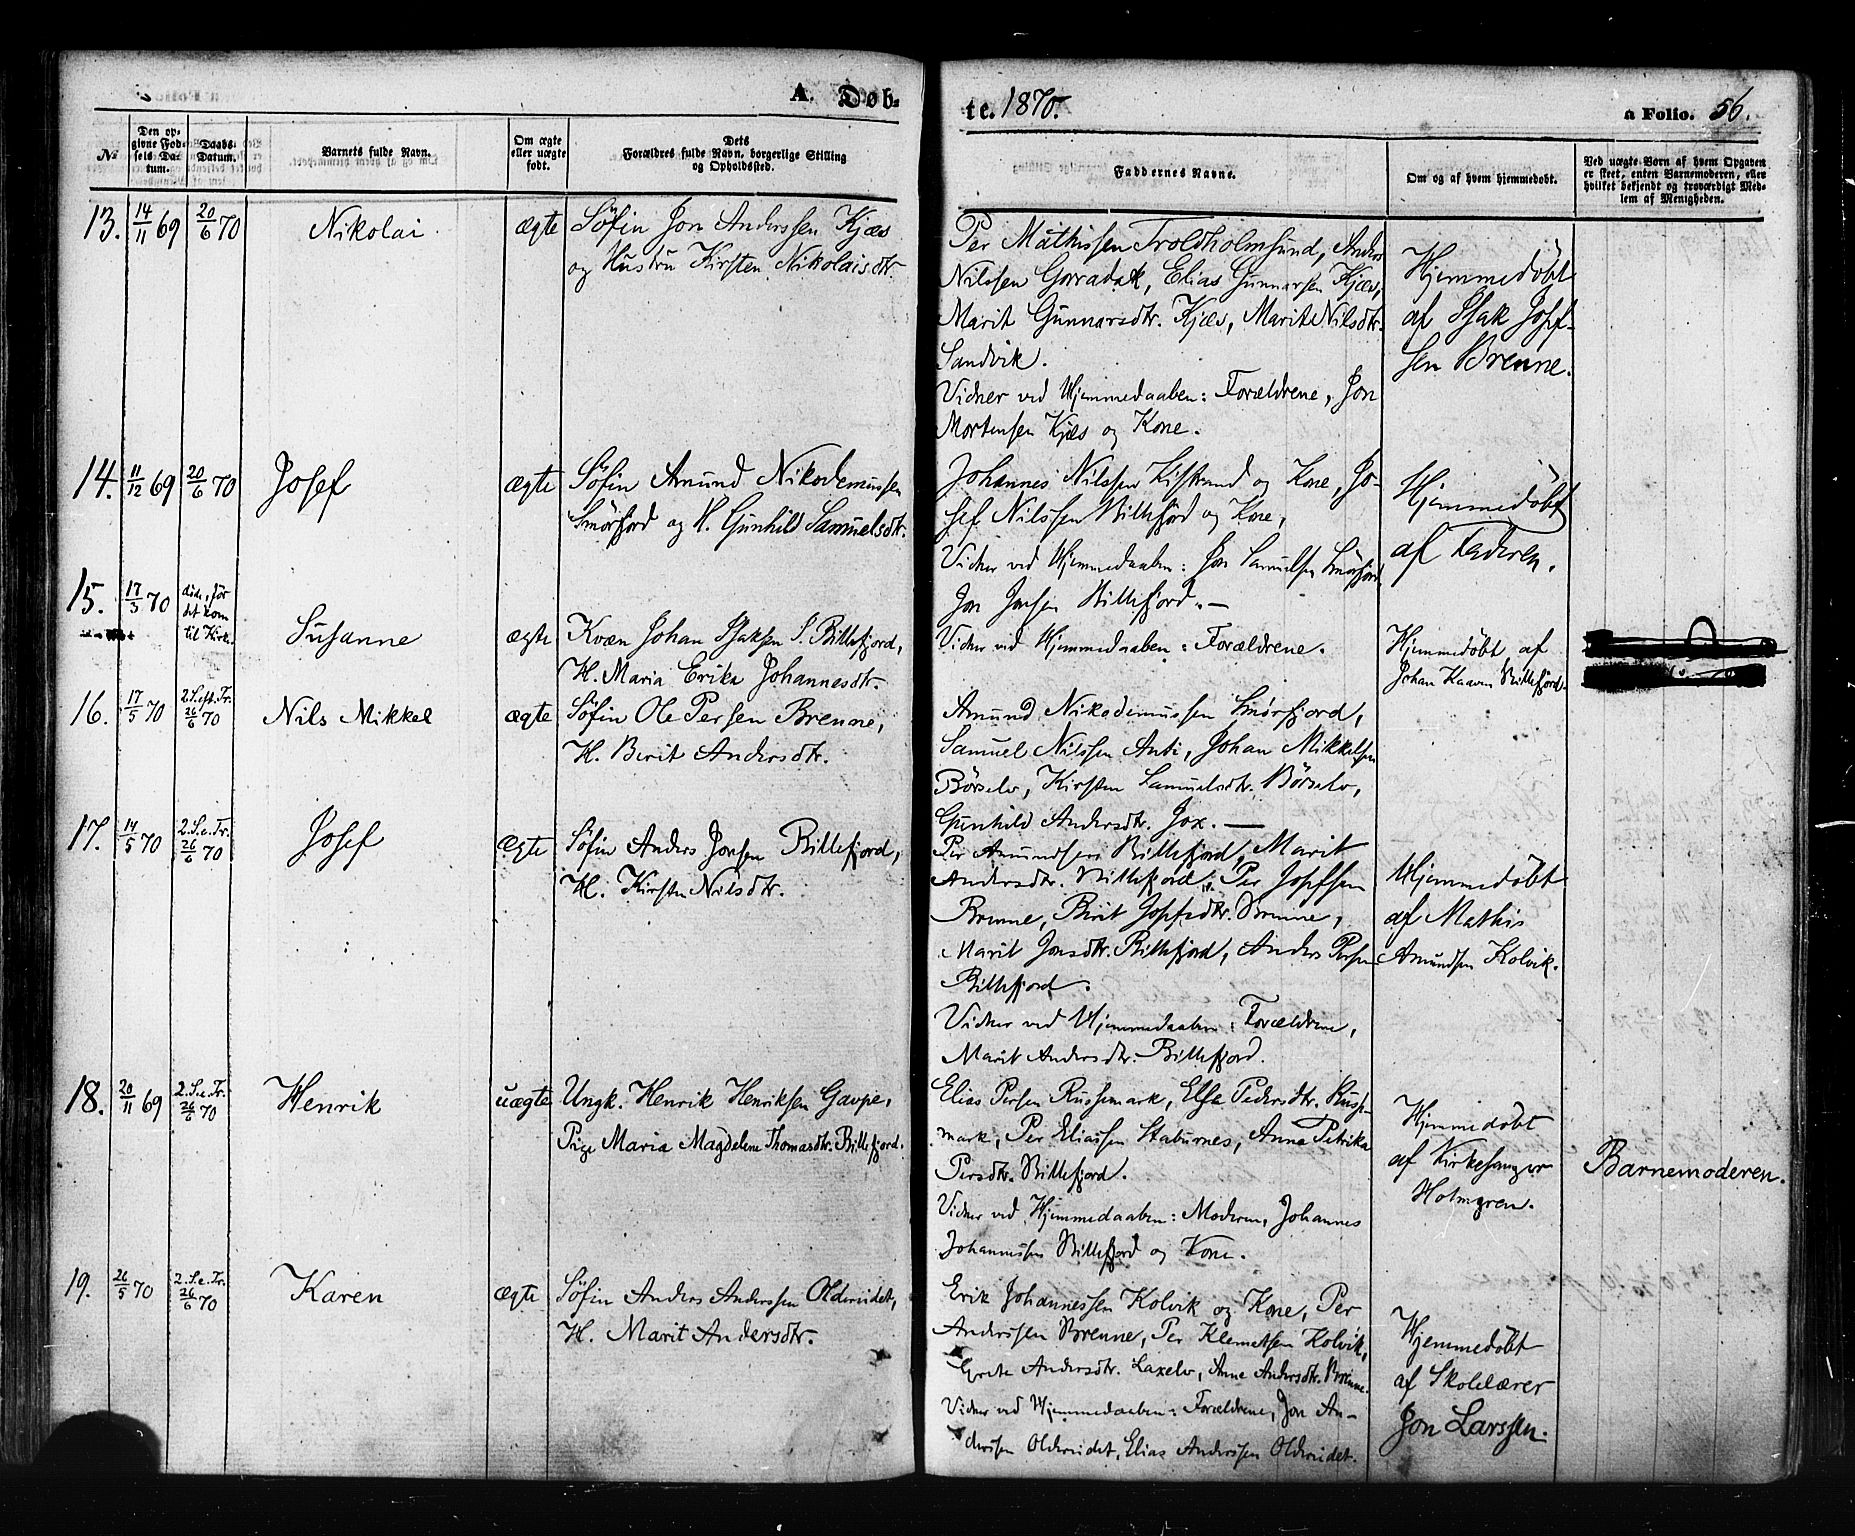 A. Døb-
te. 1870.
a Folio. 56.
№
Den op-
givne Fød-
sels Da-
tum.
Daabs-
Datum.
Barnets fulde Navn.
Om ægte
eller uægte
født.
Dets
Forældres fulde Navn, borgerlige Stilling
og Opholdssted.
Faddernes Navne.
Om og af hvem hjemmedøbt.
Ved uægte Børn af hvem Opgaven
er skeet, enten Barnemoderen, eller
hvilket bekjendt og troværdigt Med-
lem af Menigheden.
13. 14/11 69 20/6 70 Nikolai ægte
Søfin Jon Anderssen Kjæs
og Hustru Kirsten Nikolaisdtr.
Per Mathissen Troldholmsund, Anders
Nilssen Gorradak, Elias Gunnarsen Kjæs,
Marit Gunnarsdtr. Kjæs, Marit Nilsdtr.
Sandvik.
Vidner ved Hjemmedaaben: Forældrene, Jon
Mortensen Kjæs og Kone.
Hjemmedøbt
af Isak Josef-
sen Brenne.
14. 11/12 69 20/6 70 Josef ægte
Søfin Amund Nikodemussen
Smørfjord og H. Gunhild Samuelsdtr.
Johannes Nilssen Kistrand og Kone, Jo-
sef Nilssen Billefjord og Kone,
Vidner ved Hjemmedaaben: Jon Samuelsen Smørfjord
Jon Jonsen Billefjord.—
Hjemmedøbt
af Faderen.
15. 17/3 70
døde, før
det kom
til Kirke
Susanne ægte
Kvæn Johan Isaksen S. Billefjord,
H. Maria Erika Johannesdtr.
Vidner ved Hjemmedaaben: Forældrene.
Hjemmedøbt af
Johan Kaaven Billefjord.
16. 17/5 70
2. S. eft. Tr.
26/6 70
Nils Mikkel ægte
Søfin Ole Persen Brenne,
H. Berit Andersdtr.
Amund Nikodemussen Smørfjord,
Samuel Nilssen Anti, Johan Mikkelsen
Børselv, Kirsten Samuelsdtr. Børselv,
Gunhild Andersdtr. Jox.—
17. 14/5 70
2. S. e. Tr.
26/6 70
Josef ægte
Søfin Anders Jonsen Billefjord,
H. Kirsten Nilsdtr.
Per Amundsen Billefjord, Marit
Andersdtr. Billefjord, Per Josefsen
Brenne, Berit Josefsdtr. Brenne,
Marit Jonsdtr. Billefjord, Anders Persen
Billefjord.
Vidner ved Hjemmedaaben: Forældrene,
Marit Andersdtr. Billefjord.
Hjemmedøbt
af Mathis
Amundsen Kolvik.
18. 20/11 69
2. S. e. Tr.
26/6 70
Henrik uægte
Ungk. Henrik Henriksen Gavpe,
Pige Maria Magdelene Thomasdtr. Billefjord.
Elias Persen Russemark, Else Pedersdtr. Russe-
mark, Per Eliassen Staburnes, Anna Petrika
Persdtr. Billefjord.
Vidner ved Hjemmedaaben: Moderen, Johannes
Johannessen Billefjord og Kone.
Hjemmedøbt
af Kirkesanger
Holmgren.
Barnemoderen.
19. 26/5 70
2. S. e. Tr.
26/6 70
Karen ægte
Søfin Anders Anderssen Oldereidet,
H. Marit Andersdtr.
Erik Johannessen Kolvik og Kone, Per
Anderssen Brenne, Per Klemetsen Kolvik,
Grete Andersdtr. Laxelv, Anne Andersdtr. Brenne.
Vidner ved Hjemmedaaben: Forældrene, Jon An-
derssen Oldereidet, Elias Anderssen Oldereidet.
Hjemmedøbt
af Skolelærer
Jon Larssen.